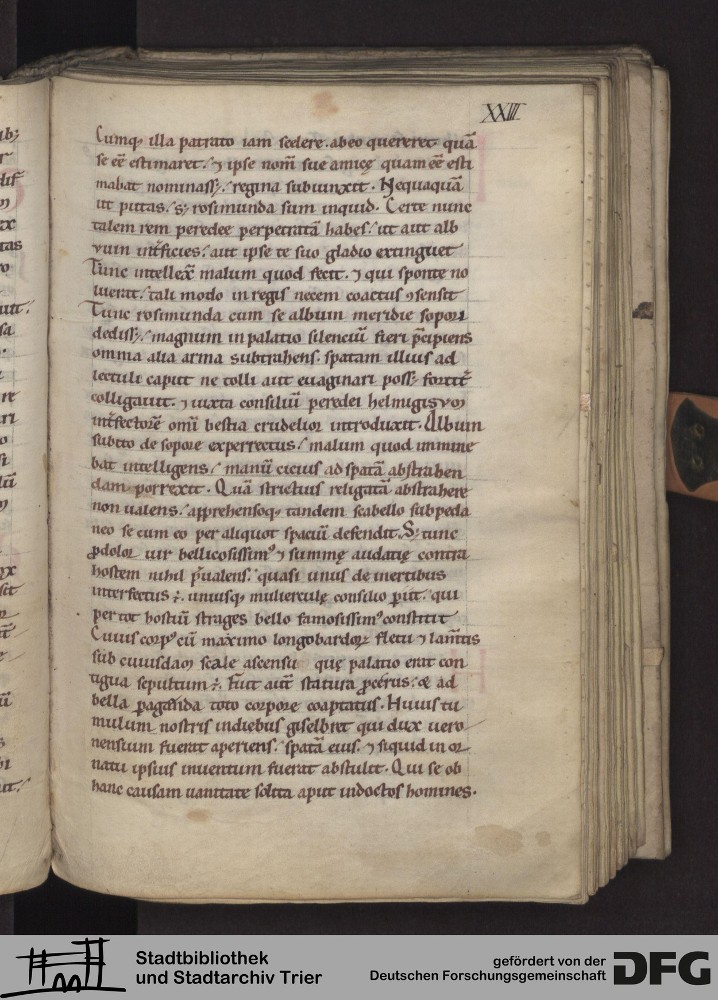 XXIII
Cumq; illa patrato iam scelere. ab eo quereret quā
se eē estimaret.' ⁊ ipse nom̄ sue amicę quam eē esti
mabat nominass;.' regina subiunxit. Nequaquā
ut putas. s; rosimunda sum inquid. Certe nunc
talem rem peredee perpetratā habes.' ut aut alb
vuin int̄ficies.' aut ipse te suo gladio extinguet
Tunc intellex̄ malum quod fecit. ⁊ qui sponte no
luerat.' tali modo in regis necem coactus ɔsensit
Tunc rosimunda cum se albuin meridie sopori
dediss;.' magnum in palatio silenciū fieri p̄cipiens
omnia alia arma subtrahens. spatam illius ad
lectuli caput ne tolli aut euaginari poss; fortit̄
colligauit. ⁊ iuxta consiliū peredei helmigis vo
int̄fectorē omī bestia crudelior introduxit. Albuin
subito de sopore experrectus.' malum quod immine
bat intelligens.' manū cicius ad spatā abstrahen
dam porrexit. Quā strictius religatā abstrahere
non ualens.' apprehensoq; tandem scabello subpeda
neo se cum eo per aliquot spaciū defendit. S; tunc
ꝓdolor uir bellicosissim' ⁊ summę audatię contra
hostem nihil p̄ualens. quasi unus de inertibus
interfectus ÷. uniusq; mulierculę consilio ꝑiit. qui
per tot hostiū strages bello famosissim' constitit
Cuius corp' cū maximo longobardoꝝ fletu ⁊ lam̄tis
sub cuiusdam scale ascensu quę palatio erat con
tigua sepultum ÷. Fuit aut̄ statura ꝓcerus. & ad
bella ꝑagenda toto corpore coaptatus. Huius tu
mulum nostris in diebus giselbret qui dux uero
nensium fuerat aperiens. spatā eius. ⁊ siquid in or
natu ipsius inuentum fuerat abstulit. Qui se ob
hanc causam uanitate solita aput indoctos homines.
Stadtbibliothek
und Stadtarchiv Trier
gefördert von der
Deutschen Forschungsgemeinschaft
DFG